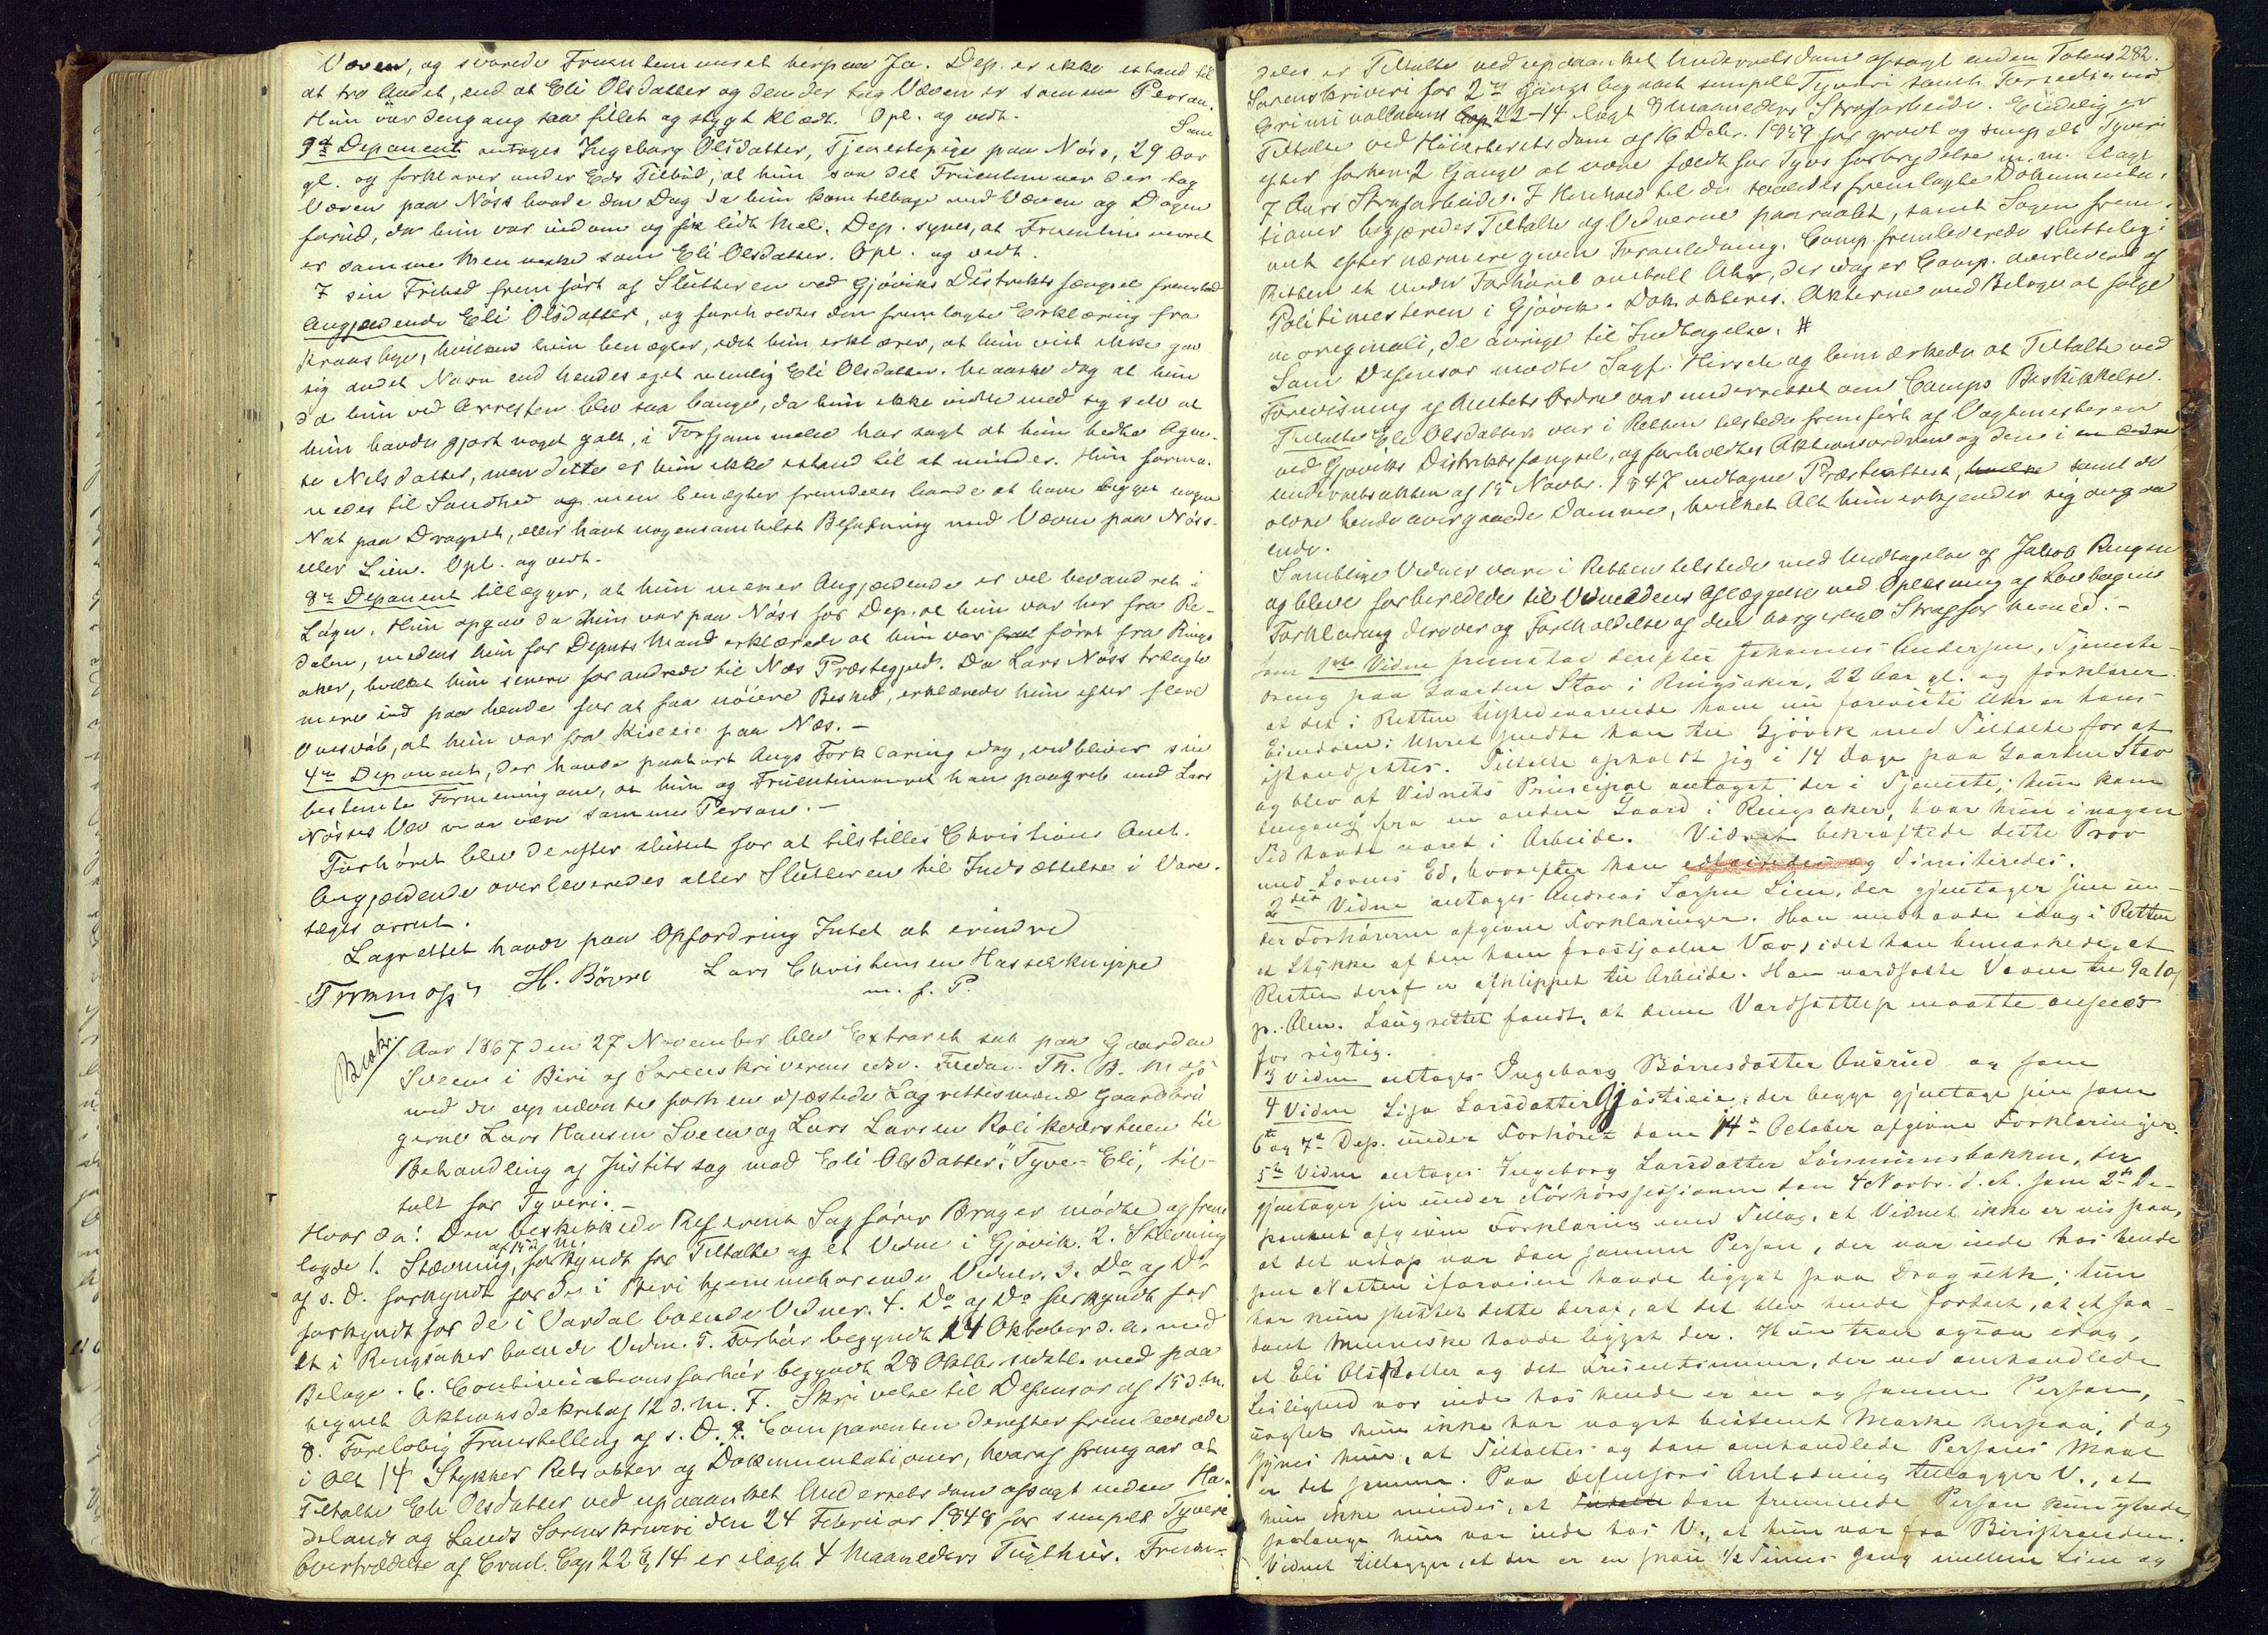 Væven, og svarede Fruentemmeret herpaa Ja. Dep. er ikke istand til
at tro Andet, end at Eli Olsdatter og den der tog Væven er samme Person.
Hun var dengang saa fillet og stygt klædt. Opl. og vedt.
Som
9de Deponent antages Ingeborg Olsdatter, Tjenestepige paa Nöss, 29 Aar
gl. og forklarer under Eds Tilbud, at hun saa det Fruentimmer der tog
Væven paa Nöss baade den Dag da hun kom tilbage med Væven og Dagen
forud, da hun var indom og fik lidt Mel. Dep. synes, at Fruentimmeret
er samme Menneske som Eli Olsdatter. Opl. og vedt.
I sin Frihed fremført af Slutteren ved Gjöviks Distriktsfængsel fremstod
Angjældende Eli Olsdatter, og foreholdtes den fremlagte Erklæring fra
Kraasbye, hvilken hun benægter, idet hun erklærer, at hun vist ikke gav
sig andet Navn end hendes eget nemlig Eli Olsdatter. Maaske dog at hun
da hun ved Arresten blev saa bange, da hun ikke vidste med sig selv at
hun havde gjort noget galt, i Forfjammelse har sagt at hun hedte Agne-
te Nilsdatter, men dette er hun ikke istand til at mindes. Hun forma-
nedes til Sandhed og men benægter fremdeles baade at have ligget nogen
Nat paa Dragsek, eller havt nogensomhelst Befatning med Væven paa Nöss
eller Lien. Opl. og vedt.
8de Deponent tillægger, at hun mener Angjældende er vel bevandret i
Lögn. Hun opgav da hun var paa Nöss for Dep. at hun var her fra Re-
dalen, medens hun for Deptts Mand erklærede at hun var født først fra Rings
aker, hvilket hun senere forandrede til Næs Præstegjeld. Da Lars Nöss trængte
mere ind paa hende for at faa nöiere Besked, erklærede hun efter flere
Omsvöb, at hun var fra Kiseeie paa Næs. –
4de Deponent, der havde paahørt Angs Forklaring idag, vedbliver sin
bestemte Formening om, at hun og Fruentimmeret han paagreb med Lars
Nösses Væv maa være samme Person. –
Forhöret blev derefter sluttet for at tilstilles Christians Amt.
Angjældende overleveredes atter Slutteren til Indsættelse i Vare-
tægts arrest.
Lagrettet havde paa Opfordring Intet at erindre
H. Börre Lars Christensen Hasselknippe
m. f. P.
Beskr.
Aar 1867 den 27 November blev Extraret sat paa Gaarden
Sveen i Biri af Sorenskriverens edsv. Fuldm. Th. B. Mosjö
med de opnævnte forhen edfæstede Lagrettesmænd Gaardbru
gerne Lars Hansen Sveen og Lars Larsen Rolikværstuen til
Behandling af Justitssag mod Eli Olsdatter, "Tyve-Eli," til-
talt for Tyveri. –
Hvor da: Den beskikkede Referent Sagförer Brager mödte og frem
lagde 1. Stævning af 15 d. M. forkyndt for Tiltalte og et Vidne i Gjøvik. 2. Stævning
af s. D. forkyndt for De i Biri hjemmehørende Vidner. 3. Do af Do
forkyndt for de i Vardal boende Vidner. 4. Do af Do forkyndt for
et i Ringsaker boende Vidne. 5. Forhör begyndt 14 Oktober d. A. med
Belage. 6. Continuationsforhør begyndt 28 Oktbr sidstl. med paa
tegnet Aktionsdekret af 12 d. M. 7. Skrivelse til Defensor af 15 d. M.
8. Foreløbig Fremstilling af s. D. 9. Comparenten derefter fremleverede
i Alt 14 Stykker Retsakter og Dokumentationer, hvoraf fremgaar at
Tiltalte Eli Olsdatter ved upaaanket Underretsdom afsagt inden Ha-
delands og Lands Sorenskriveri den 24 Februar 1848 for simpelt Tyveri
Overtrædelse af Crml. Cap. 22 § 14 er ilagt 4 Maaneders Tugthus. Frem-
282.
deles er Tiltalte ved upaaanket Underretsdom afsagt inden Totens
Sorenskriveri for 2den Gang begaaet simpelt Tyveri samt Forseelse mod
Criminallovens Cap 22-14 ilagt 8 Maaneders Strafarbeide. Endelig er
Tiltalte ved Höiesteretsdom af 16 Debr. 1849 for grovt og simpelt Tyveri
efter forhen 2 Gange at være fældt for Tyvs forbrydelse m. m. ilagt
7 Aars Strafarbeide. I Henhold til de saaledes fremlagte Dokumenta-
tioner begjæredes Tiltalte og Vidnerne paaraabt, samt Sagen frem-
met efter nærmere given Foranledning. Comp. fremleverede sluttelig i
Retten et under Forhöret omtalt Uhr, der idag er Comp. overleveret af
Politimesteren i Gjövik. Dok. akteres. Akterne med Belage at følge
in originali, de øvrige til Indtagelse. #
Som Defensor mødte Sagf. Hirsch og bemærkede at Tiltalte ved
Forevisning af Amtets Ordre var underrettet om Comps Beskikkelse.
Tiltalte Eli Olsdatter var i Retten tilstede fremført af Vagtmesteren
ved Gjöviks Distriktsfængsel, og foreholdtes Aktionsordren og den i en ældre
Underretsakten af 15 Novbr. 1847 indtagne Præsteattest, hvilke samt de
over hende overgaaede Domme, hvilket Alt hun erkjender sig angaa
ende.
Samtlige Vidner vare i Retten tilstede med Undtagelse af Jakob Ringsen
og bleve forberedede til Vidneedens Aflæggelse ved Oplæsning af Lovbogens
Forklaring derover og Foreholdelse af den borgerlige Straf for Meened. –
Som 1ste Vidne fremstod derefter Johannes Andersen, Tjeneste-
dreng paa Gaarden Stav i Ringsaker, 22 Aar gl. og forklarer
at det i Retten tilstedeværende ham nu foreviste Uhr er hans
Eiendom; Uhret sendte han til Gjövik med Tiltalte for at
istandsættes. Tiltalte opholdt sig i 14 Dage paa Gaarden Stav
og blev af Vidnets Principal antaget der i Tjeneste; hun kom
dengang fra en anden Gaard i Ringsaker, hvor hun i nogen
Tid havde været i Arbeide. Vidnet bekræftede dette Prov
med Lovens Ed, hvorefter han edfæstedes og dimiteredes.
2det Vidne antages Andreas Larsen Lien, der gjentager sine un-
der Forhörerne afgivne Forklaringer. Han medhavde idag i Retten
et Stykke af den ham frastjaalne Væv, idet han bemærkede, at
Resten deraf er afklippet til Arbeide. Han værdsatte Væven til 9 a 10 ß
p. Alen. Laugrettet fandt, at denne Værdsættelse maatte ansees
for rigtig.
3 Vidne antages Ingeborg Börresdatter Onsrud og som
4 Vidne Lisa Larsdatter Gjöstieie, der begge gjentage sin som
6te og 7de Dep. under Forhöret den 14de October afgivne Forklaringer.
5te Vidne antages Ingeborg Larsdatter Lönnumsbakken, der
gjentager sin under Forhørssessionen den 4 Novbr. d. A. som 2den De-
ponent afgivne Forklaring med Tillæg, at Vidnet ikke er vis paa,
at det netop var den samme Person, der var inde hos hende
som Natten iforveien havde ligget paa Dragsekk; hun
har kun sluttet dette deraf, at det blev hende fortalt, at et saa-
dant Menneske havde ligget der. Hun tror ogsaa idag,
at Eli Olsdatter og det Fruentimmer, der ved omhandlede
Leilighed var inde hos hende er en og samme Person,
uagtet hun ikke har noget bestemt Mærke herpaa; dog
synes hun, at Tiltaltes og den omhandlede Persons Maal
er det samme. Paa Defensors Anledning tillægger V., at
hun ikke mindes, at den fremmede Person kun ytrede,
saalænge hun var inde hos V., at hun var fra Biristranden.
Vidnet tillægger, at der er en snau 1/2 Times Gang mellem Lien og